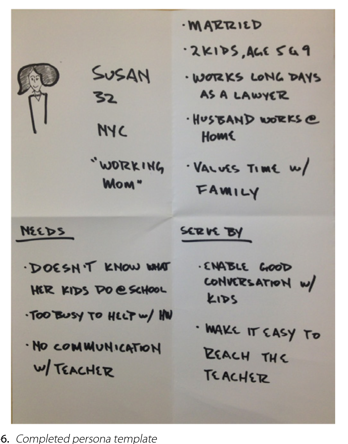 SUSAN
32
NYC
"WORKING
MOM"
· MARRIED
· 2 KIDS, AGE 5 & 9
· WORKS LONG DAYS
AS A LAWYER
· HUSBAND WORKS @
HOME
· VALUES TIME W/
FAMILY
NEEDS
· DOESN'T KNOW WHAT
HER KIDS DO @ SCHOOL
· TOO BUSY TO HELP W/ HW
· NO COMMUNICATION
W/ TEACHER
SERVE BY
· ENABLE GOOD
CONVERSATION W/
KIDS
· MAKE IT EASY TO
REACH THE
TEACHER
6. Completed persona template